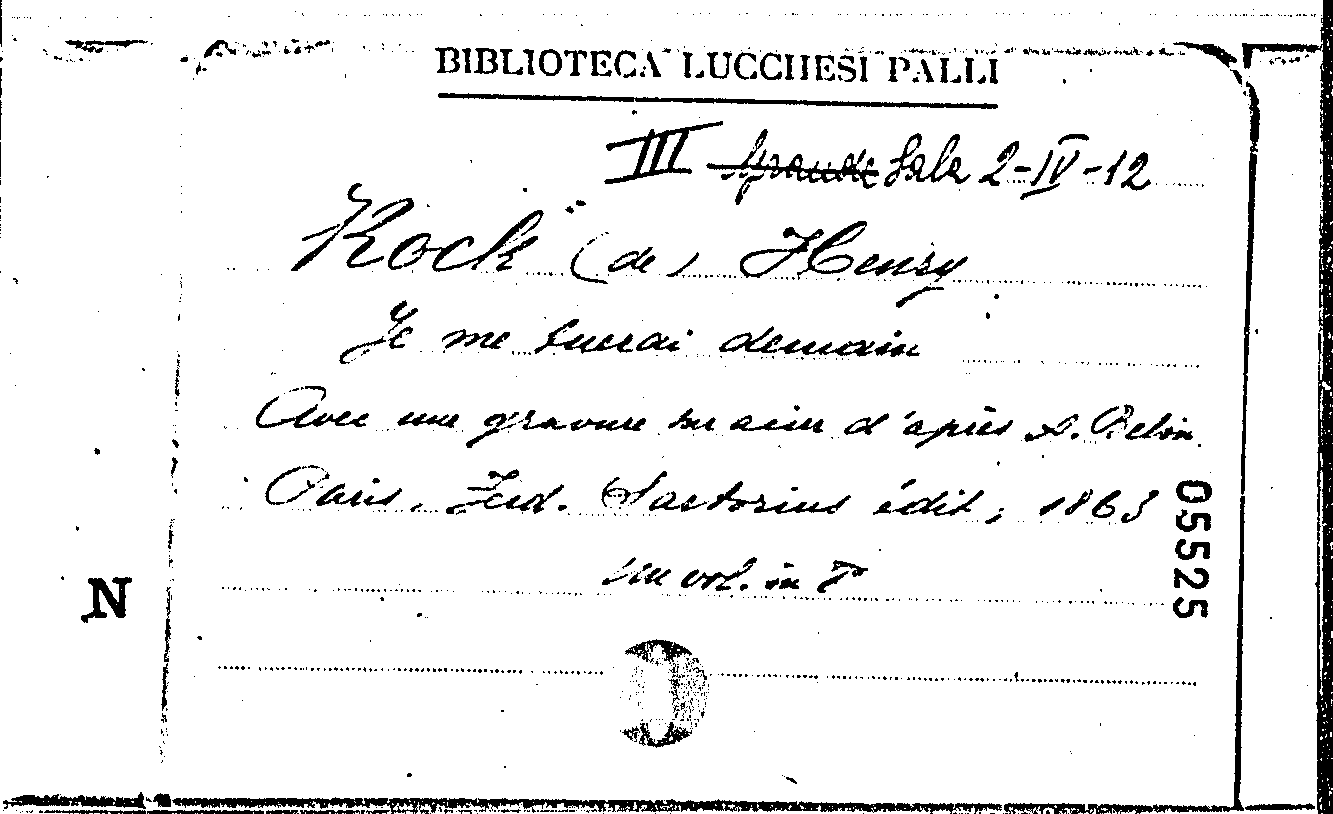 BIBLIOTECA LUCCHESI PALLI
III Grande Sala 2-IV-12
Kock (de) Henry
Je me tuerai demain
Avec une gravure sur acier d'après A. Belin
Paris, Ferd. Sartorius édit, 1863
un vol. in 8°
05525
N